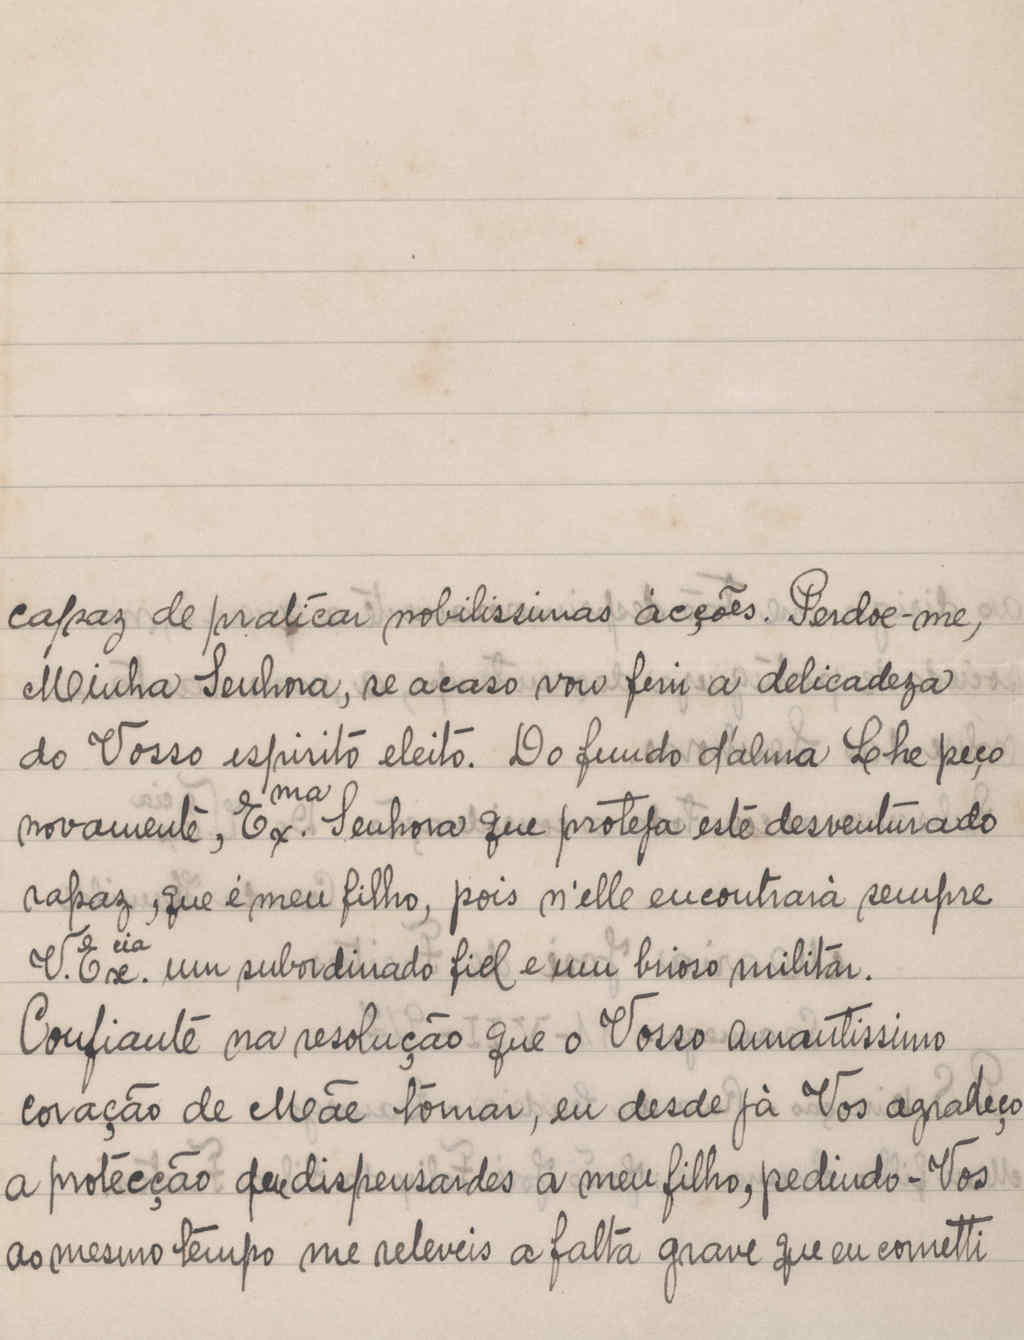 capaz de praticar nobilissimas acções. Perdoe-me,
Minha Senhora, se acaso vou ferir a delicadeza
do Vosso espirito eleito. Do fundo d'alma Lhe peço
novamente, Exma. Senhora que proteja este desventurado
rapaz, que é meu filho, pois n'elle encontrará sempre
V. Excia. um subordinado fiel e um brioso militar.
Confiante na resolução que o Vosso amantissimo
coração de Mãe tomar, eu desde já Vos agradeço
a protecção que dispensardes a meu filho, pedindo-Vos
ao mesmo tempo me releveis a falta grave que eu cometti